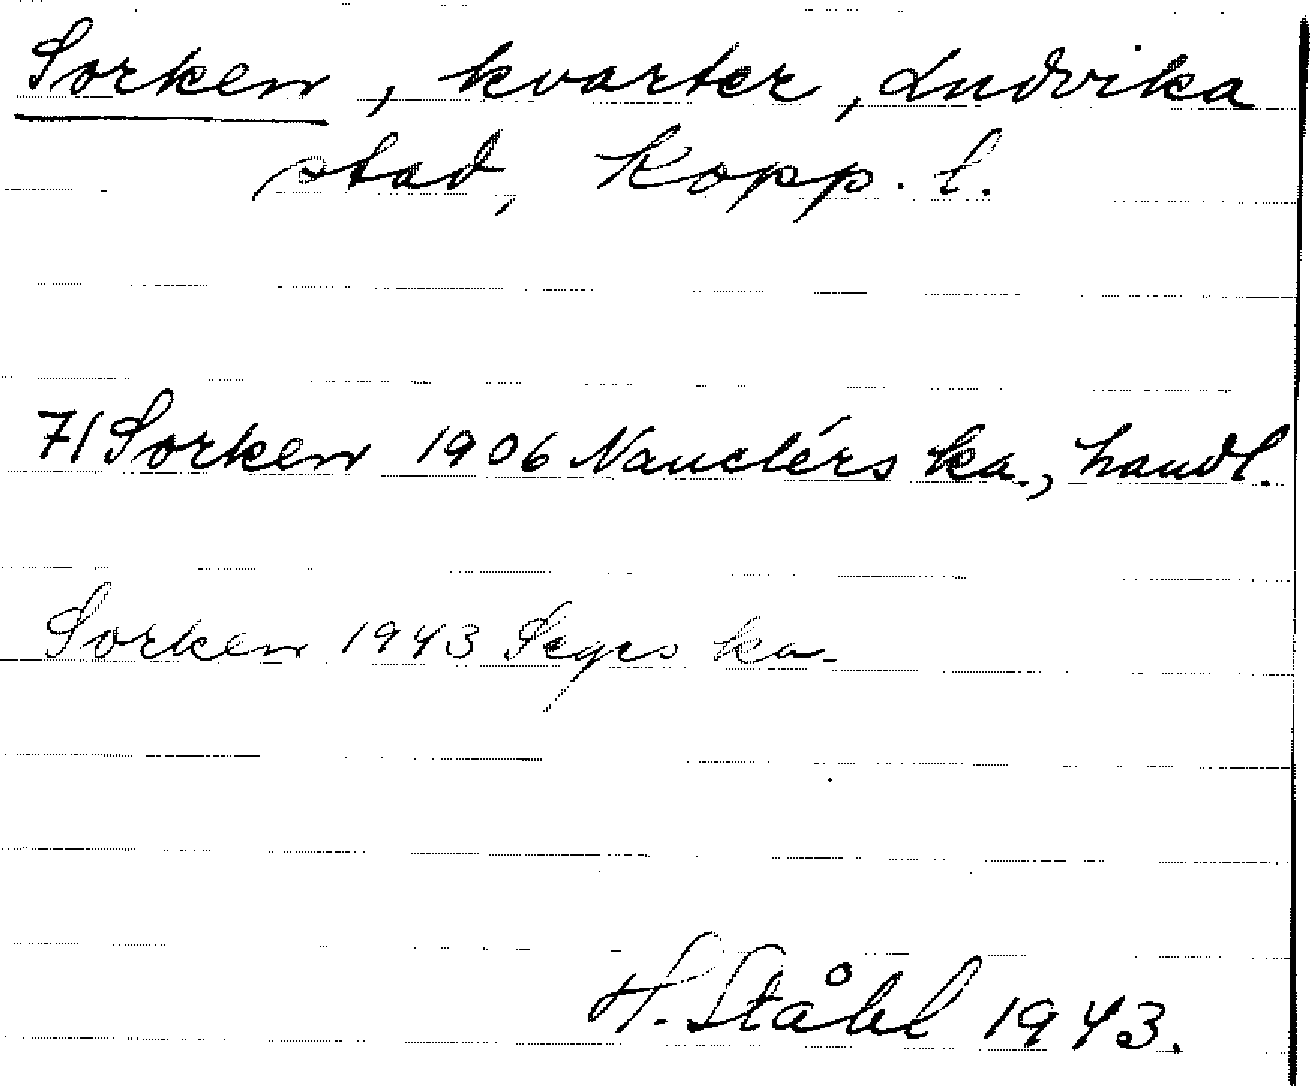 Sorken, kvarter, Ludvika
stad, Kopp. l.
71 Sorken 1906 Nauclérs ka., handl.
Sorken 1943 Segrs ka.
H. Ståhl 1943.